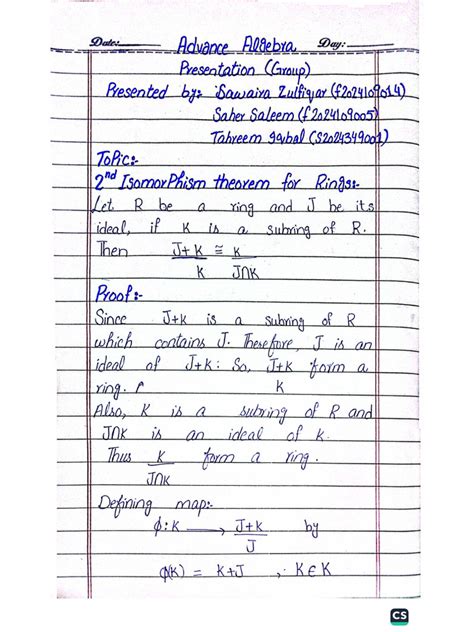 Date: Advance Algebra Day:
Presentation (Group)
Presented by: Sawaira Zulfiqar (f2024109014)
Saher Saleem (f2024109005)
Tahreem Iqbal (S2024349001)
Topic:-
2nd Isomorphism theorem for Rings:-
Let R be a ring and J be its
ideal, if K is a subring of R.
Then J+K ≅ K
K J∩K
Proof:-
Since J+K is a subring of R
which contains J. Therefore, J is an
ideal of J+K: So, J+K form a
ring. K
Also, K is a subring of R and
J∩K is an ideal of K.
Thus K form a ring.
J∩K
Defining map:-
ϕ: K → J+K by
J
ϕ(K) = K+J , ∵ K ∈ K
CS